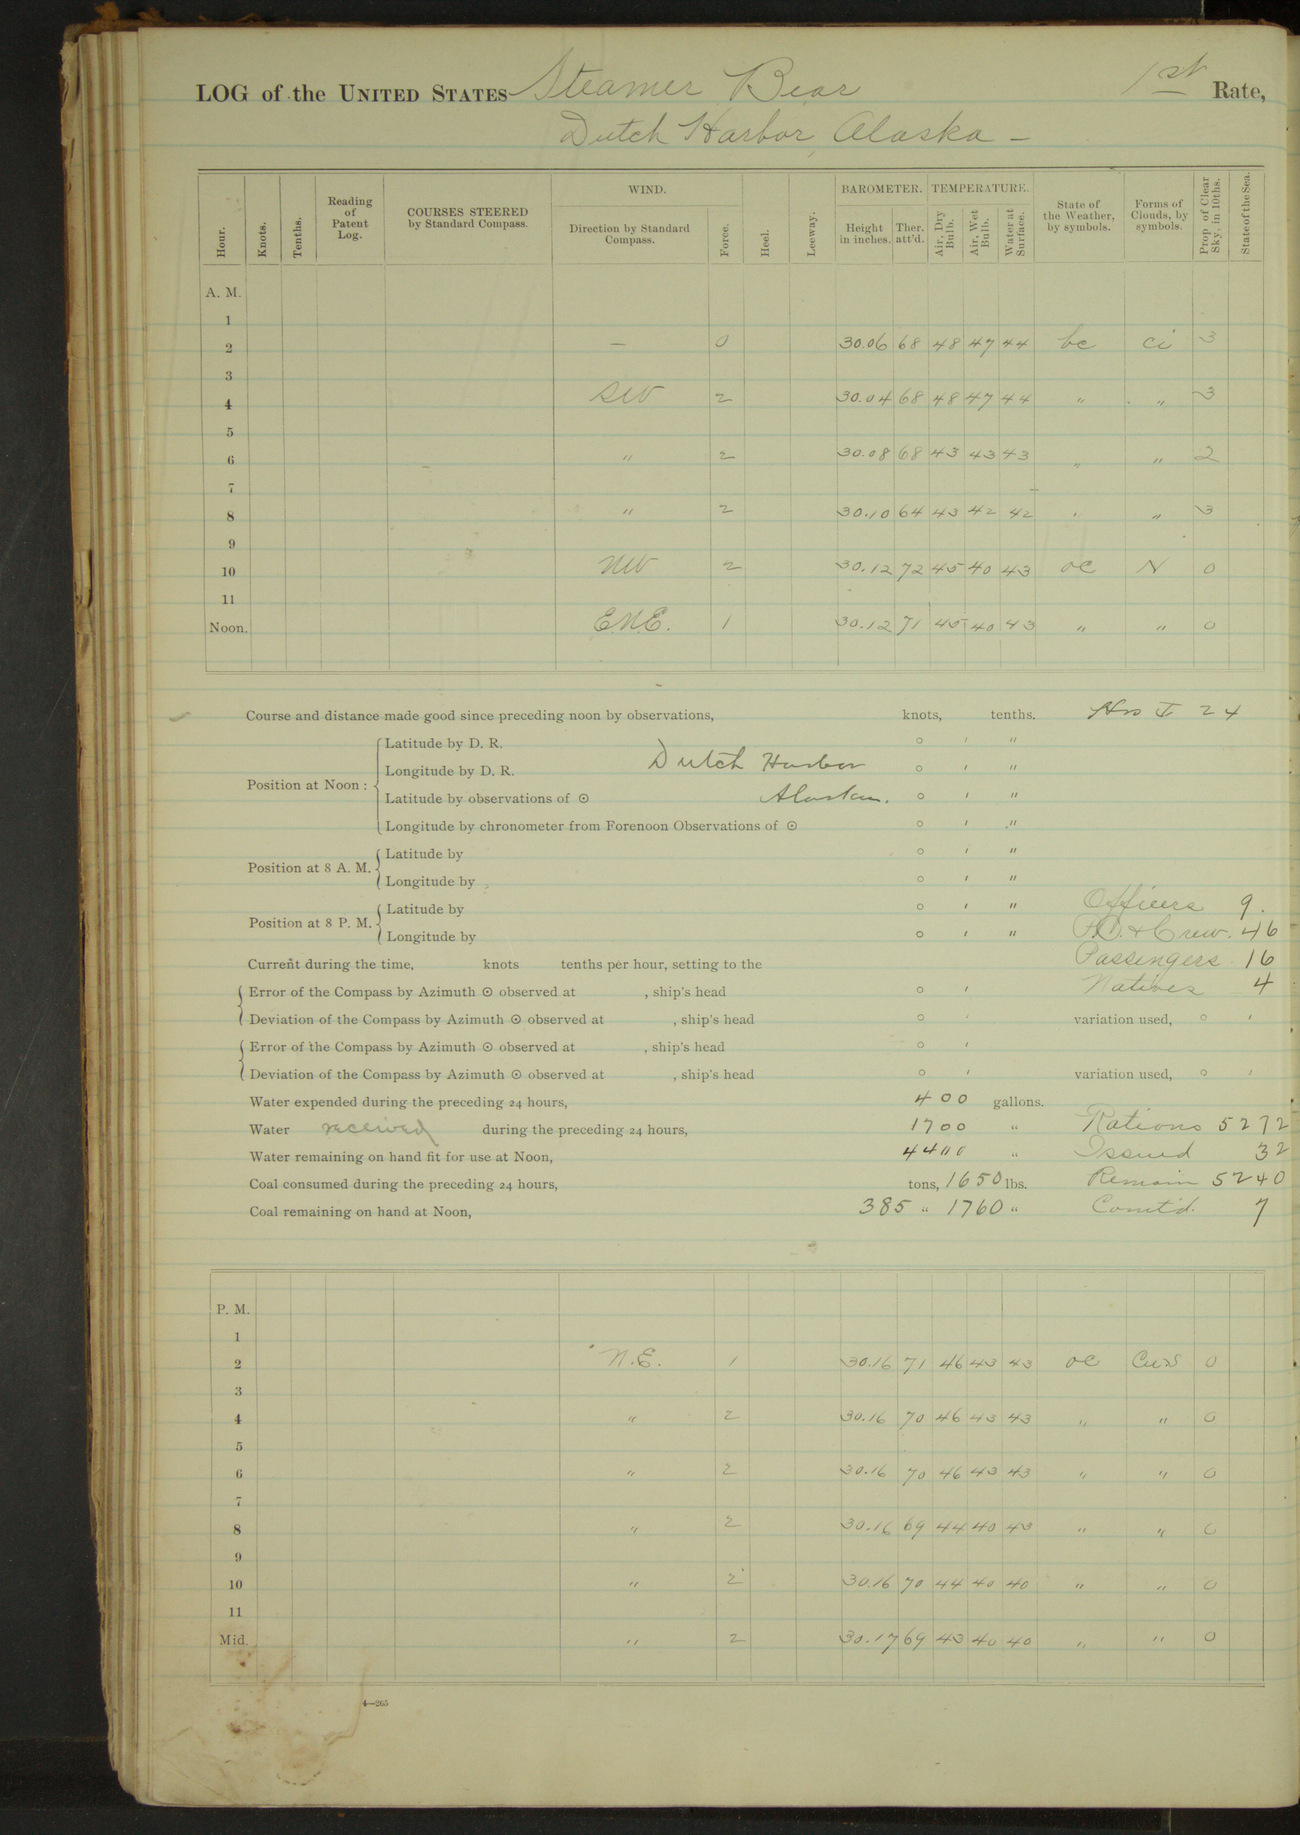 LOG of the UNITED STATES Steamer Bear 1st Rate,
Dutch Harbor, Alaska —
Hour. Knots. Tenths. Reading of Patent Log. COURSES STEERED by Standard Compass. WIND. Direction by Standard Compass. Force. Heel. Leeway. BAROMETER. Height in inches. Ther. att'd. TEMPERATURE. Air, Dry Bulb. Air, Wet Bulb. Water at Surface. State of the Weather, by symbols. Forms of Clouds, by symbols. Prop. of Clear Sky, in 10ths. State of the Sea.
A. M.
1
2 — 0 30.06 68 48 47 44 bc ci 3
3
4 SW 2 30.04 68 48 47 44 " " 3
5
6 " 2 30.08 68 43 43 43 " " 2
7
8 " 2 30.10 64 43 42 42 " " 3
9
10 NW 2 30.12 72 45 40 43 oc N 0
11
Noon. ENE. 1 30.12 71 45 40 43 " " 0
Course and distance made good since preceding noon by observations, knots, tenths. 24
Position at Noon :
Latitude by D. R. ° ' "
Longitude by D. R. Dutch Harbor ° ' "
Latitude by observations of ⊙ Alaska. ° ' "
Longitude by chronometer from Forenoon Observations of ⊙ ° ' "
Position at 8 A. M.
Latitude by ° ' "
Longitude by ° ' "
Position at 8 P. M.
Latitude by ° ' " Officers 9.
Longitude by ° ' " P.O. & Crew. 46
Current during the time, knots tenths per hour, setting to the Passengers 16
Error of the Compass by Azimuth ⊙ observed at , ship's head ° ' Natives 4
Deviation of the Compass by Azimuth ⊙ observed at , ship's head ° ' variation used, ° '
Error of the Compass by Azimuth ⊙ observed at , ship's head ° '
Deviation of the Compass by Azimuth ⊙ observed at , ship's head ° ' variation used, ° '
Water expended during the preceding 24 hours, 400 gallons.
Water received during the preceding 24 hours, 1700 " Rations 5272
Water remaining on hand fit for use at Noon, 4400 " Issued 32
Coal consumed during the preceding 24 hours, tons, 1650 lbs. Remain 5240
Coal remaining on hand at Noon, 385 " 1760 " Comt'd. 7
P. M.
1
2 N.E. 1 30.16 71 46 43 43 oc CuS 0
3
4 " 2 30.16 70 46 43 43 " " 0
5
6 " 2 30.16 70 46 43 43 " " 0
7
8 " 2 30.16 69 44 40 43 " " 0
9
10 " 2 30.16 70 44 40 40 " " 0
11
Mid. " 2 30.17 69 43 40 40 " " 0
4—265